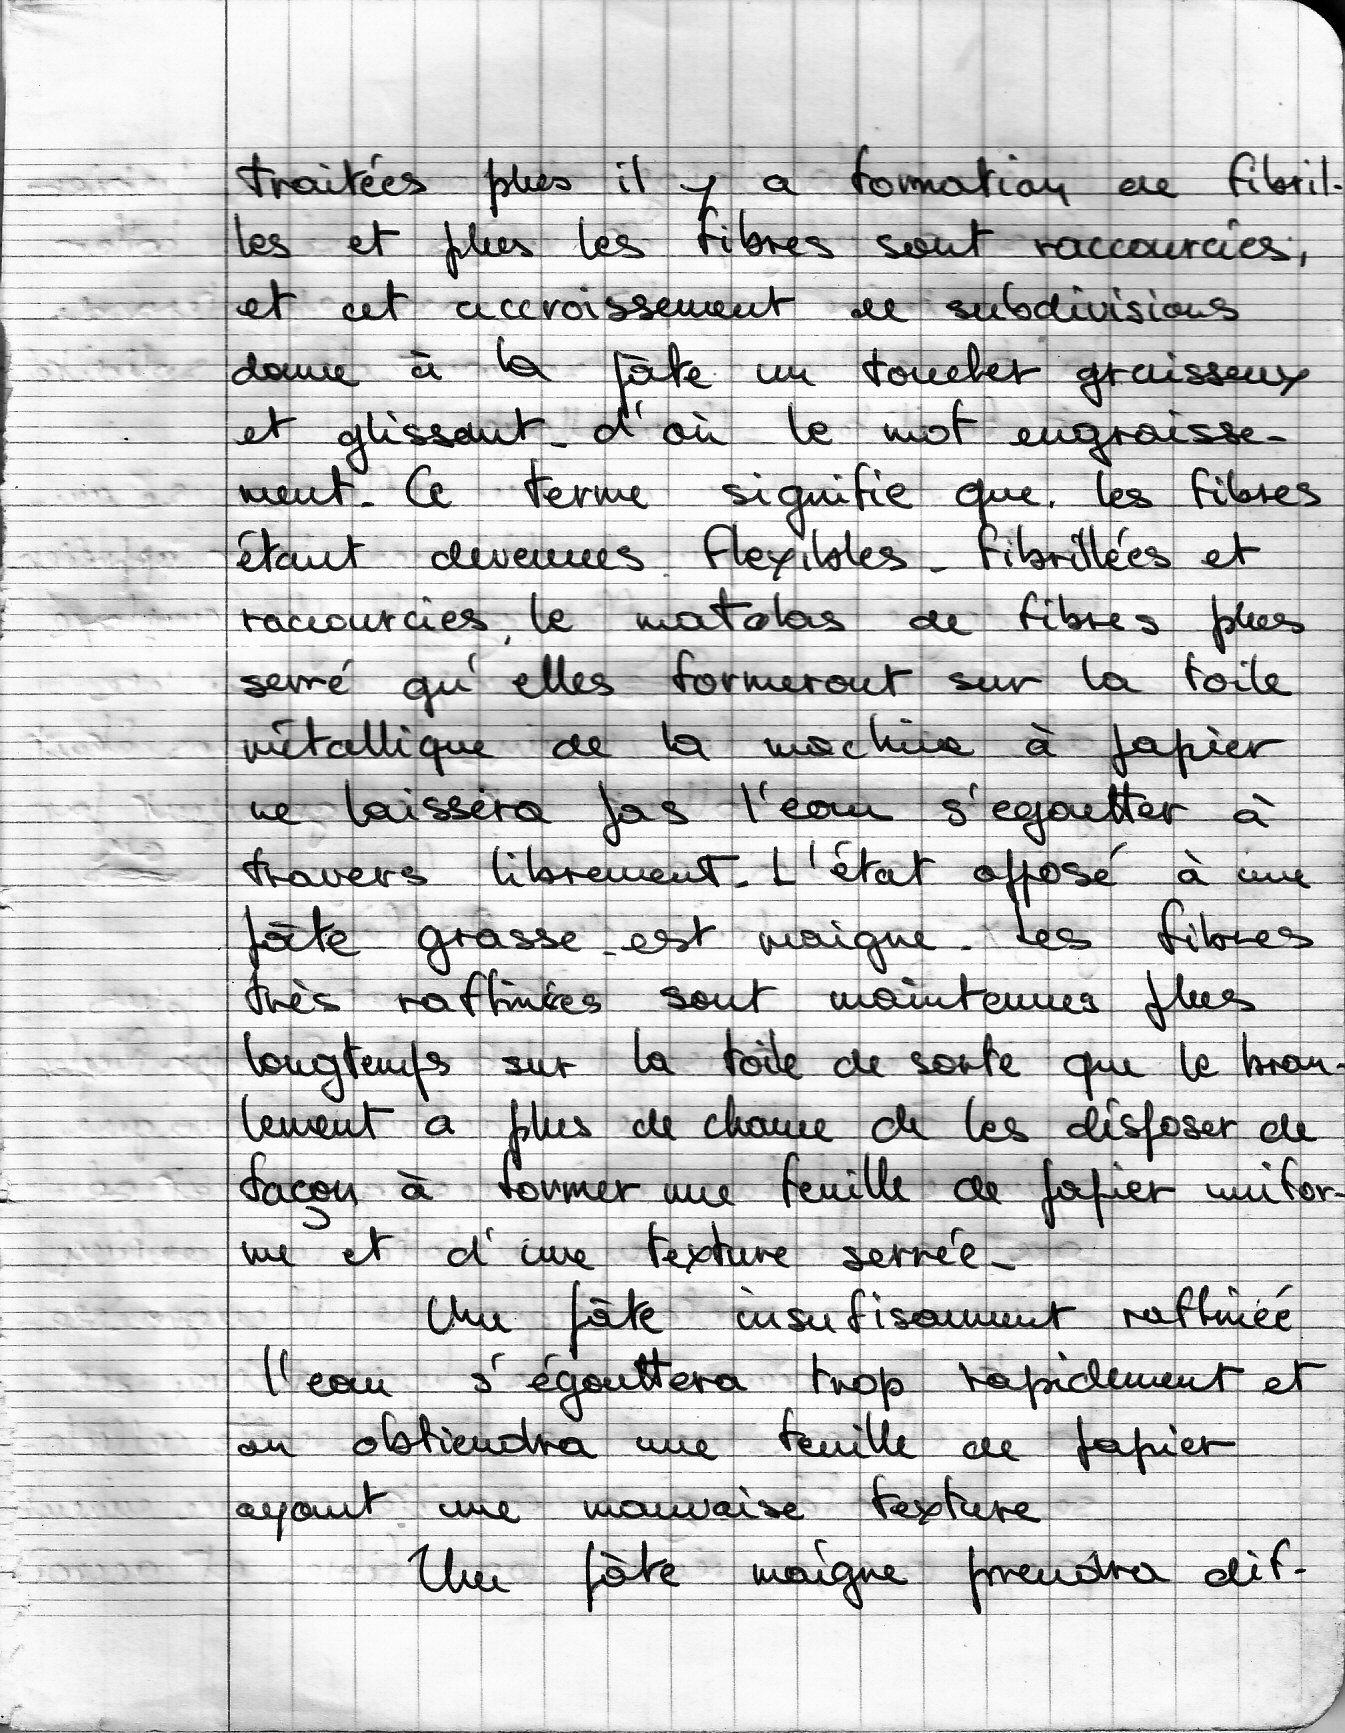 traitées plus il y a formation de fibril-
les et plus les fibres sont raccourcies,
et cet accroissement de subdivisions
donne à la pâte un toucher graisseux
et glissant - d'où le mot engraisse-
ment - Ce terme signifie que les fibres
étant devenues flexibles - fibrillées et
raccourcies, le matelas de fibres plus
serré qu'elles formeront sur la toile
métallique de la machine à papier
ne laissera pas l'eau s'egoutter à
travers librement - L'état opposé à une
pâte grasse est maigre - Les fibres
très raffinées sont maintenues plus
longtemps sur la toile de sorte que le bran-
lement a plus de chance de les disposer de
façon à former une feuille de papier unifor-
me et d'une texture serrée -
Une pâte insufisamment raffinéé
l'eau s'égouttera trop rapidement et
on obtiendra une feuille de papier
ayant une mauvaise texture
Une pâte maigre prendra dif-